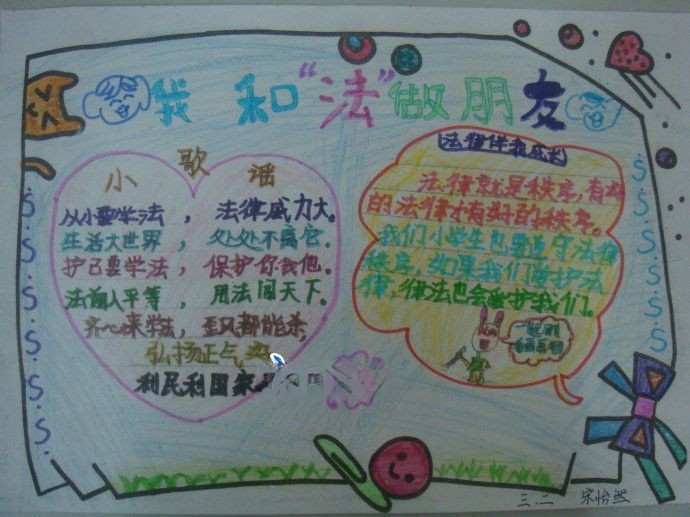 我和“法”做朋友
小歌谣
从小要学法，法律威力大。
生活大世界，处处不离它。
护己要学法，保护你我他。
法前人平等，用法闯天下。
齐心来学法，歪风都能杀，
弘扬正气
利民利国家
法律伴我成长
法律就是秩序，有好
的法律才有好的秩序。
我们小学生也要遵守法律
秩序，如果我们爱护法
律，律法也会爱护我们。
S.S.S.S.S.S.S.S.
S.S.S.S.S.S.
三.二 宋怡然